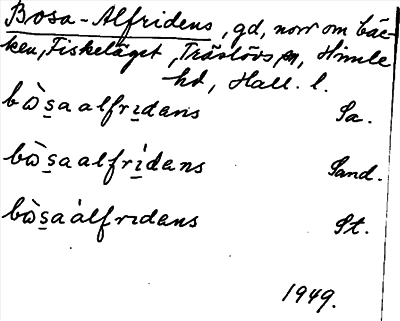 Bosa-Alfridens, gd, norr om bäc-
ken, Fiskeläget, Träslövs sn, Himle
hd, Hall. l.
bὼs̱aalfrɪdans Sa.
bὼs̱aalfrɪ́dans Sand.
bὼs̱aàlfrɪdans St.
1949.